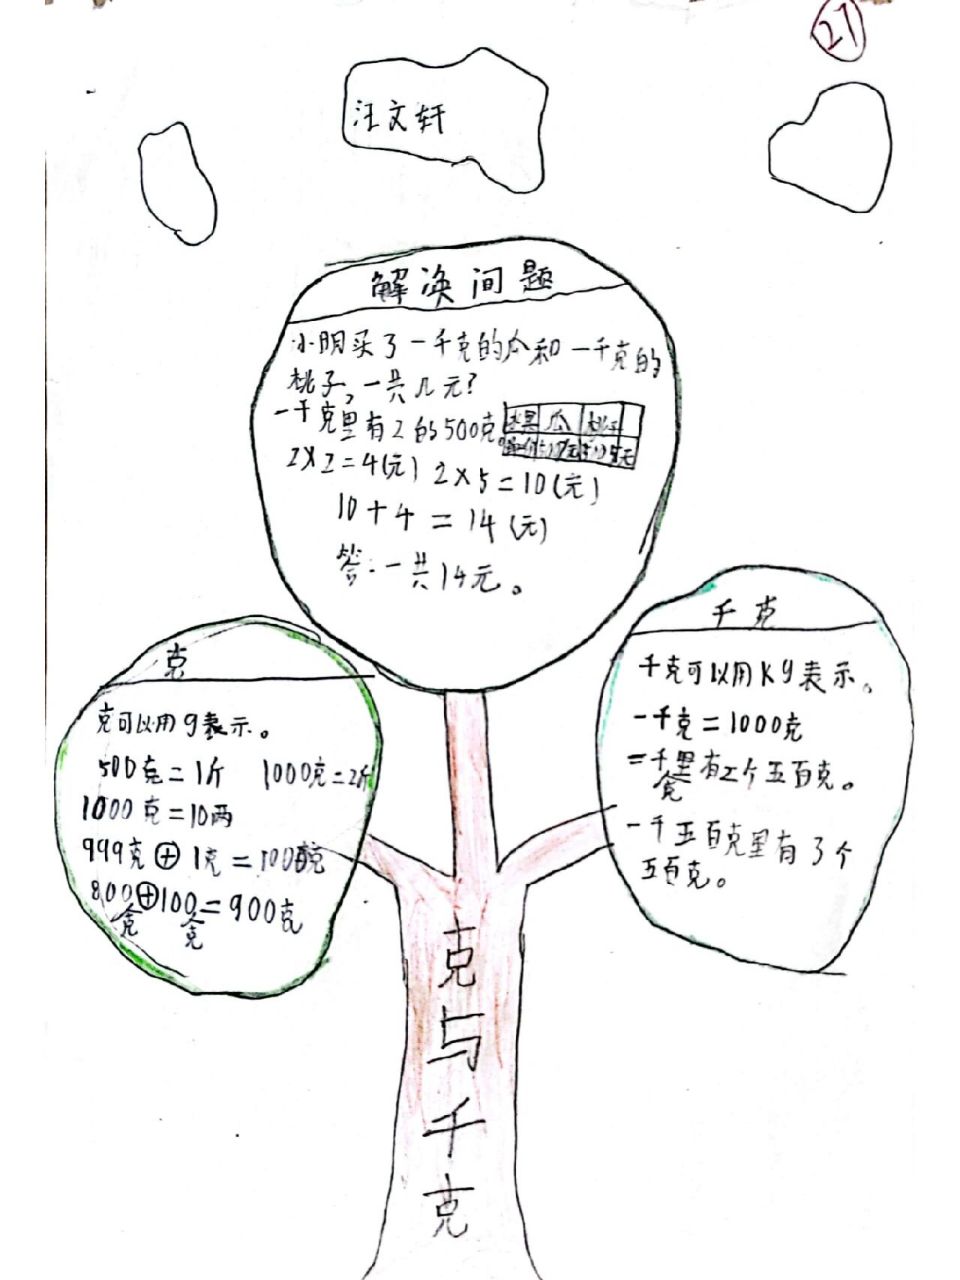 27
汪文轩
解决问题
小明买了一千克的瓜和一千克的
桃子,一共几元?
一千克里有2的500克。
水果 瓜 桃子
2×2=4(元) 2×5=10(元)
10+4=14(元)
答:一共14元。
克
克可以用g表示。
500克=1斤 1000克=2斤
1000克=10两
999克+1克=1000克
800克+100克=900克
千克
千克可以用Kg表示。
一千克=1000克
一千克里有2个五百克。
一千五百克里有3个
五百克。
克与千克